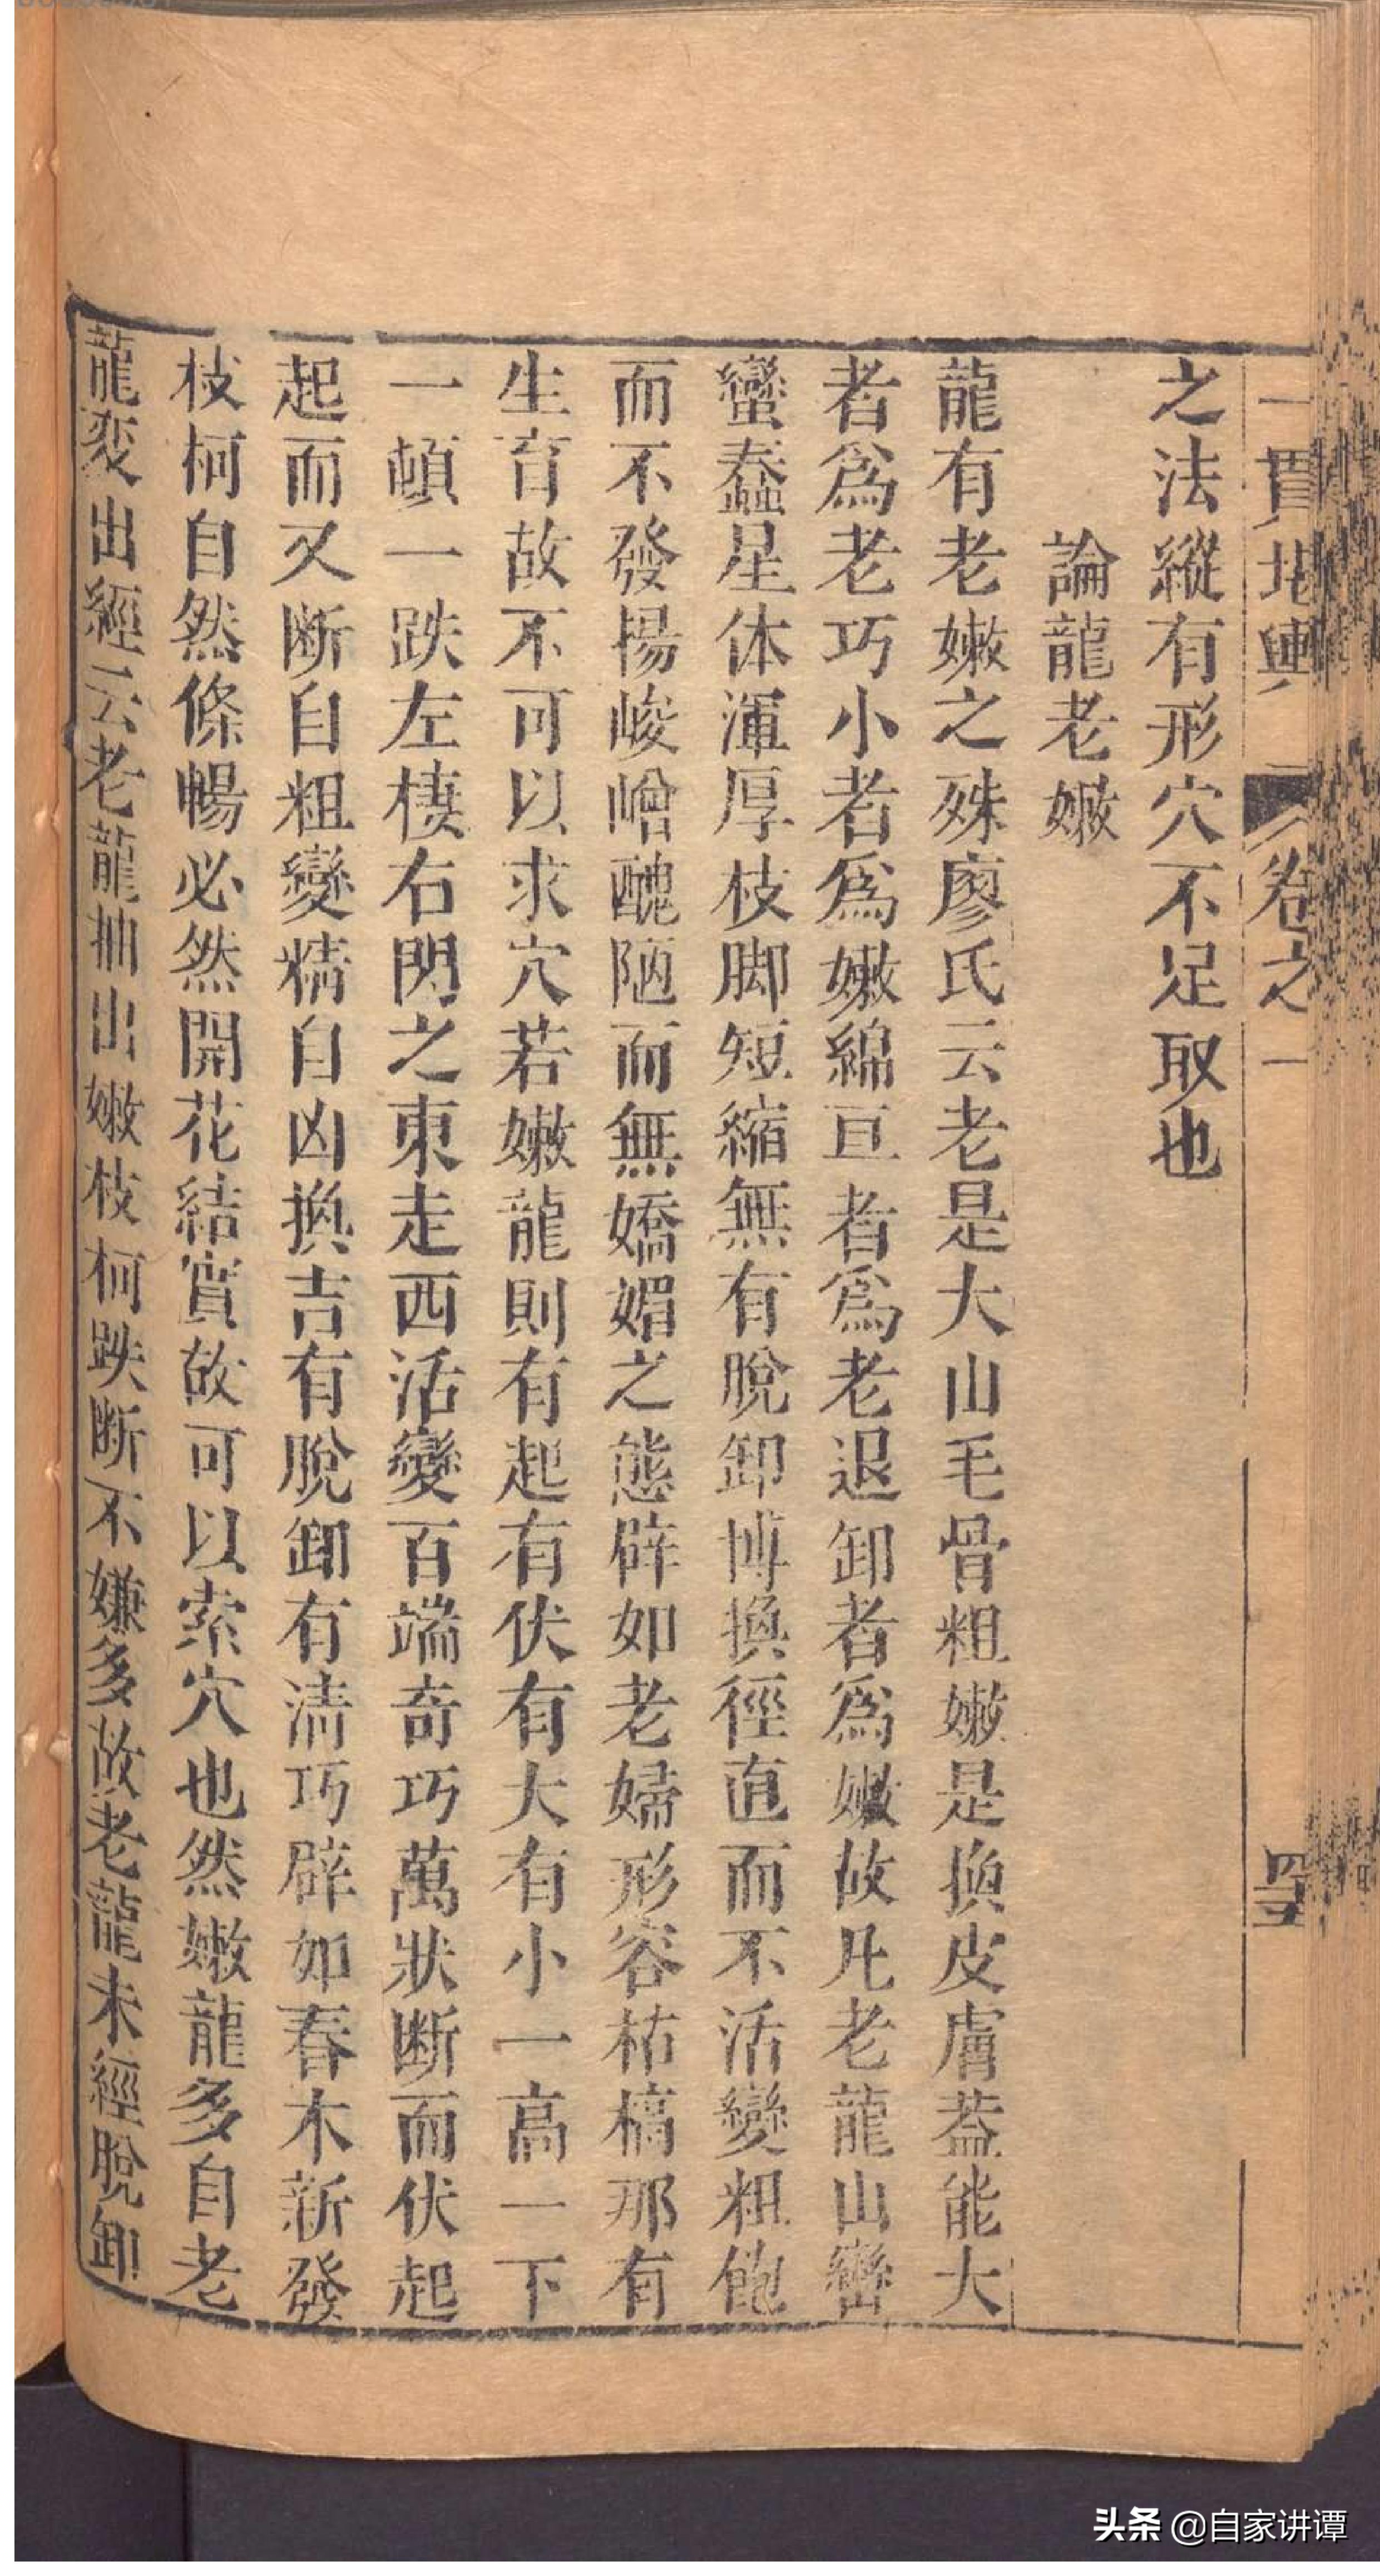 一貫堪輿 卷之一
之法縱有形穴不足取也
論龍老嫩
龍有老嫩之殊廖氏云老是大山毛骨粗嫩是換皮膚葢能大
者爲老巧小者爲嫩綿亘者爲老退卸者爲嫩故凡老龍山巒
蠻蠢星体渾厚枝脚短縮無有脫卸博換徑直而不活變粗飽
而不發揚峻嶒醜陋而無嬌媚之態辟如老婦形容枯槁那有
生育故不可以求穴若嫩龍則有起有伏有大有小一高一下
一頓一跌左棲右閃之東走西活變百端奇巧萬狀断而伏起
起而又断自粗變精自凶換吉有脫卸有清巧辟如春木新發
枝柯自然條暢必然開花結實故可以索穴也然嫩龍多自老
龍变出經云老龍抽出嫩枝柯跌断不嫌多故老龍未經脫卸
头条 @自家讲谭